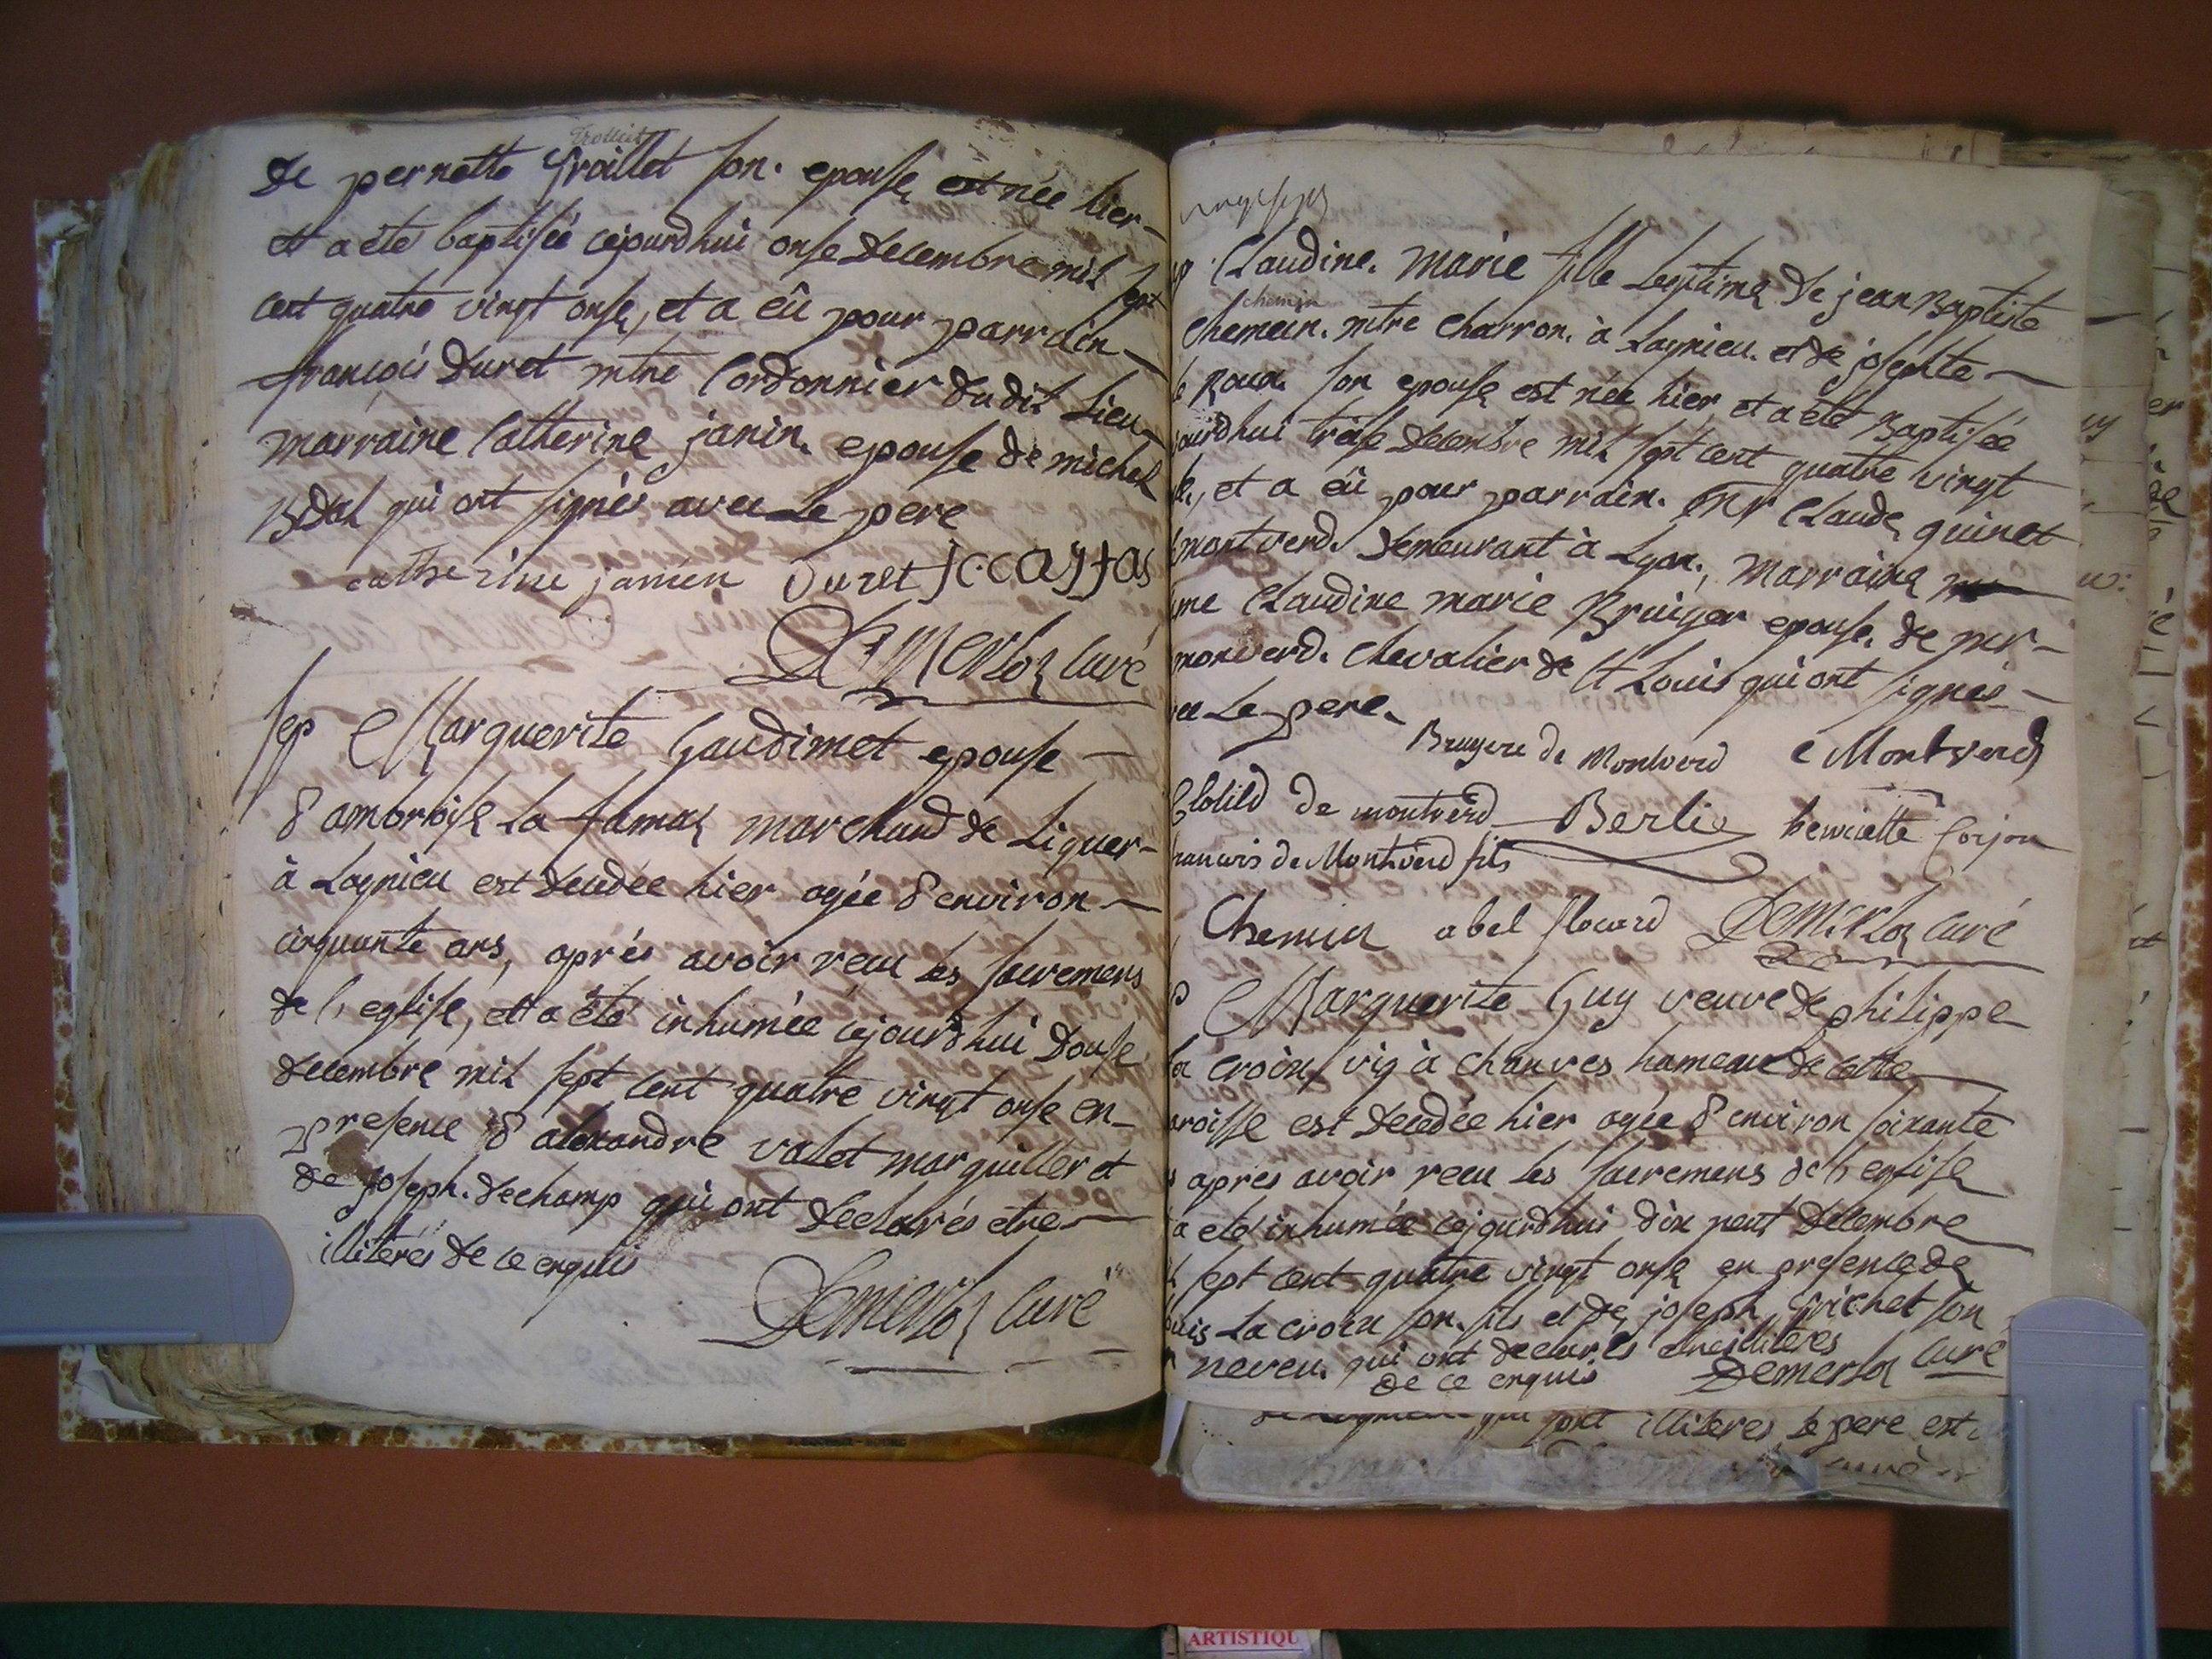 Trolliet
De pernette Grollet son epouse est née hier
et a été baptisée cejourdhui onse Decembre mil sept
cent quatre vingt onse, et a eû pour parrain
françois Duret mtre Cordonnier du dit lieu
marraine Catherine janin epouse de michel
Bidal qui ont signés avec Le pere
catherine janien Duret
Demerloz Curé
sep Marguerite Gaudimet epouse
d'ambroise La fama marchand de Liquer
à Lagnieu est decedée hier agée d'environ
cinquante ans, aprés avoir reçu les sacremens
de l'eglise, et a été inhumée cejourdhui Douse
decembre mil sept cent quatre vingt onse en
presence d'alexandre valet marguiller et
de joseph dechamp qui ont declarés etre
illiterés de ce enquis
Demerloz Curé
vingt sept
Claudine marie fille Legitime de jean Baptiste
chemin
Chemein mtre Charron à Lagnieu et de josephte
Roux son epouse est née hier, et a été Baptisée
jourdhui treise Decembre mil sept cent quatre vingt
et a eû pour parrain Mr Claude quinet
montverd demeurant à Lyon, marraine
me Claudine marie Bruiyer epouse de mr
monverd Chevalier de st Louis qui ont signés
Le pere
Bruyere de Montverd C Montverd
Clotild de montverd Berlie henriette Corjon
francois de Montverd fils
Chemin abel flocard Demerloz curé
Marguerite Guy veuve de philippe
La croix vig à Chanves hameau de cette
paroisse est decedée hier agée d'environ soixante
apres avoir recu les sacremens de l'eglise
a eté inhumée cejourdhui dix neuf Decembre
sept cent quatre vingt onse en presence de
Louis La croix son fils et de joseph Grichet son
neveu qui ont declarés etre illiterés
de ce enquis Demerloz Curé
qui sont illiteres, le pere est
ARTISTIQU